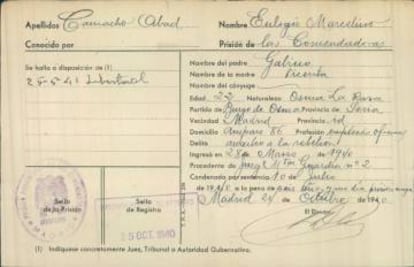 Apellidos Camacho Abad Nombre Eulogio Marcelino
Conocido por Prisión de las Comendadoras
Se halla a disposición de (1)
Nombre del padre Gabino
Nombre de la madre Vicenta
Nombre del cónyuge
Edad 22 Naturaleza Osma La Rasa
Partido de Burgo de Osma Provincia de Soria
Vecindad Madrid Provincia id
Domicilio Amparo 86 Profesión empleado oficina
Delito auxilio a la rebelión
Ingresó en 28 de Marzo de 1940
Procedente de Guardia nº 2
Condenado por sentencia 10 de Julio
de 1940 a la pena de seis y un día
Madrid 24 de Octubre de 1940
El Director
Sello de la Prisión
Sello de Registro
25 OCT. 1940
(1) Indíquese concretamente Juez, Tribunal o Autoridad Gubernativa.